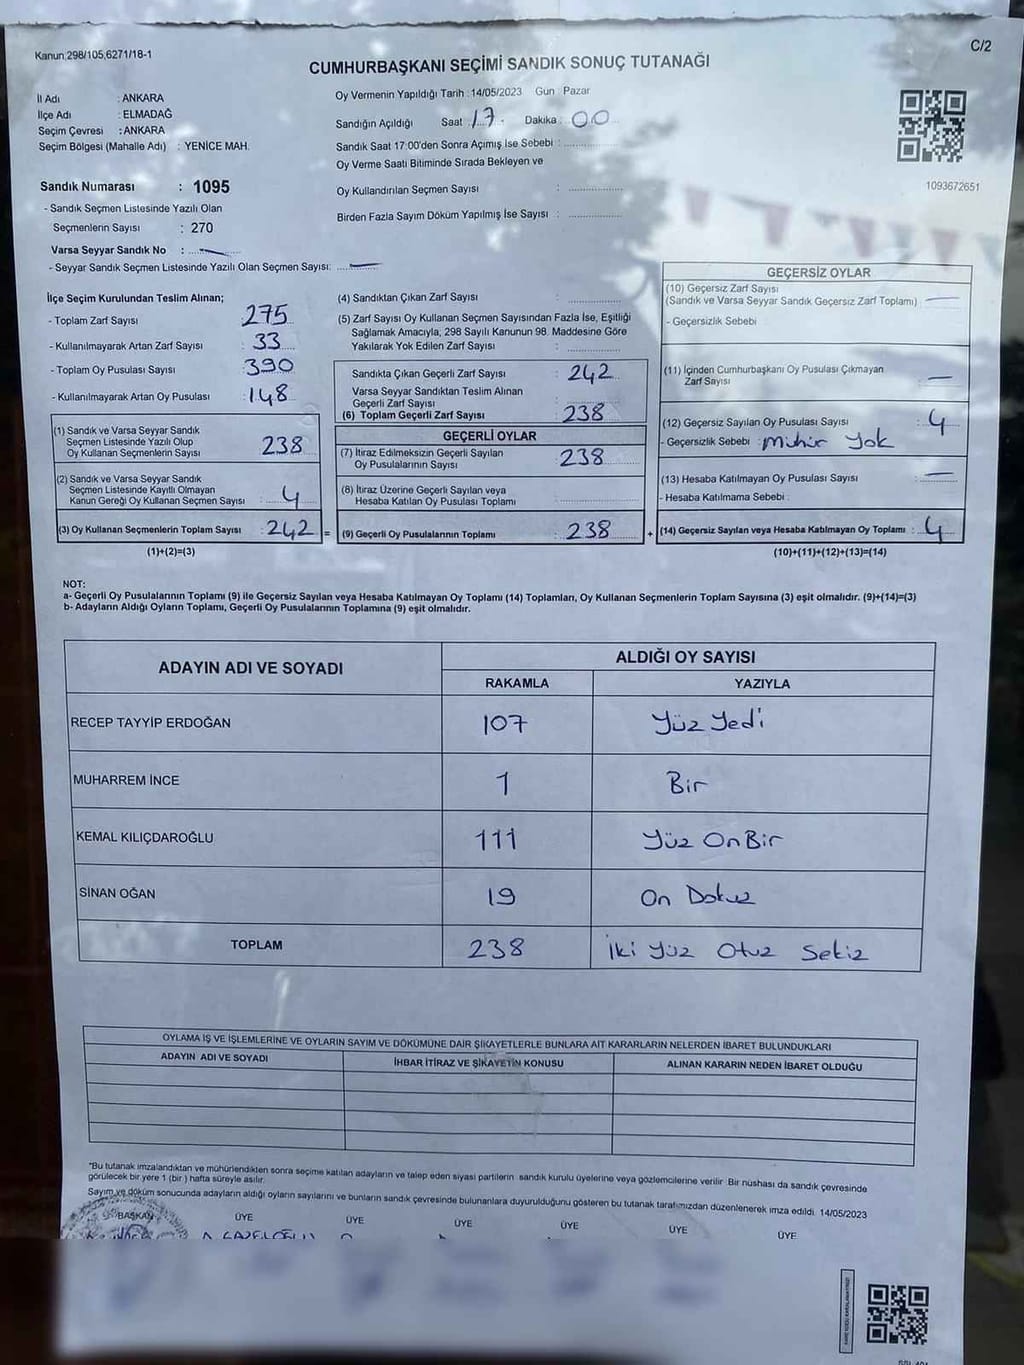 Kanun:298/105,6271/18-1
C/2
CUMHURBAŞKANI SEÇİMİ SANDIK SONUÇ TUTANAĞI
İl Adı : ANKARA
İlçe Adı : ELMADAĞ
Seçim Çevresi : ANKARA
Seçim Bölgesi (Mahalle Adı) : YENİCE MAH.
Sandık Numarası : 1095
- Sandık Seçmen Listesinde Yazılı Olan
Seçmenlerin Sayısı : 270
Varsa Seyyar Sandık No :
- Seyyar Sandık Seçmen Listesinde Yazılı Olan Seçmen Sayısı:
Oy Vermenin Yapıldığı Tarih : 14/05/2023 Gün Pazar
Sandığın Açıldığı Saat : 17 Dakika : 00
Sandık Saat 17:00'den Sonra Açımış İse Sebebi :
Oy Verme Saati Bitiminde Sırada Bekleyen ve
Oy Kullandırılan Seçmen Sayısı :
Birden Fazla Sayım Döküm Yapılmış İse Sayısı :
1093672651
İlçe Seçim Kurulundan Teslim Alınan;
- Toplam Zarf Sayısı : 275
- Kullanılmayarak Artan Zarf Sayısı : 33
- Toplam Oy Pusulası Sayısı : 390
- Kullanılmayarak Artan Oy Pusulası : 148
(1) Sandık ve Varsa Seyyar Sandık
Seçmen Listesinde Yazılı Olup
Oy Kullanan Seçmenlerin Sayısı : 238
(2) Sandık ve Varsa Seyyar Sandık
Seçmen Listesinde Kayıtlı Olmayan
Kanun Gereği Oy Kullanan Seçmen Sayısı : 4
(3) Oy Kullanan Seçmenlerin Toplam Sayısı : 242 =
(1)+(2)=(3)
(4) Sandıktan Çıkan Zarf Sayısı :
(5) Zarf Sayısı Oy Kullanan Seçmen Sayısından Fazla İse, Eşitliği
Sağlamak Amacıyla, 298 Sayılı Kanunun 98. Maddesine Göre
Yakılarak Yok Edilen Zarf Sayısı :
Sandıkta Çıkan Geçerli Zarf Sayısı : 242
Varsa Seyyar Sandıktan Teslim Alınan
Geçerli Zarf Sayısı :
(6) Toplam Geçerli Zarf Sayısı : 238
GEÇERLİ OYLAR
(7) İtiraz Edilmeksizin Geçerli Sayılan
Oy Pusulalarının Sayısı : 238
(8) İtiraz Üzerine Geçerli Sayılan veya
Hesaba Katılan Oy Pusulası Toplamı :
(9) Geçerli Oy Pusulalarının Toplamı : 238 +
GEÇERSİZ OYLAR
(10) Geçersiz Zarf Sayısı
(Sandık ve Varsa Seyyar Sandık Geçersiz Zarf Toplamı) :
- Geçersizlik Sebebi :
(11) İçinden Cumhurbaşkanı Oy Pusulası Çıkmayan
Zarf Sayısı :
(12) Geçersiz Sayılan Oy Pusulası Sayısı : 4
- Geçersizlik Sebebi : mühür yok
(13) Hesaba Katılmayan Oy Pusulası Sayısı :
- Hesaba Katılmama Sebebi :
(14) Geçersiz Sayılan veya Hesaba Katılmayan Oy Toplamı : 4
(10)+(11)+(12)+(13)=(14)
NOT:
a- Geçerli Oy Pusulalarının Toplamı (9) ile Geçersiz Sayılan veya Hesaba Katılmayan Oy Toplamı (14) Toplamları, Oy Kullanan Seçmenlerin Toplam Sayısına (3) eşit olmalıdır. (9)+(14)=(3)
b- Adayların Aldığı Oyların Toplamı, Geçerli Oy Pusulalarının Toplamına (9) eşit olmalıdır.
ADAYIN ADI VE SOYADI
ALDIĞI OY SAYISI
RAKAMLA YAZIYLA
RECEP TAYYİP ERDOĞAN 107 Yüz Yedi
MUHARREM İNCE 1 Bir
KEMAL KILIÇDAROĞLU 111 Yüz On Bir
SİNAN OĞAN 19 On Dokuz
TOPLAM 238 İki Yüz Otuz Sekiz
OYLAMA İŞ VE İŞLEMLERİNE VE OYLARIN SAYIM VE DÖKÜMÜNE DAİR ŞİKAYETLERLE BUNLARA AİT KARARLARIN NELERDEN İBARET BULUNDUKLARI
ADAYIN ADI VE SOYADI İHBAR İTİRAZ VE ŞİKAYETİN KONUSU ALINAN KARARIN NEDEN İBARET OLDUĞU
*Bu tutanak imzalandıktan ve mühürlendikten sonra seçime katılan adayların ve talep eden siyasi partilerin sandık kurulu üyelerine veya gözlemcilerine verilir. Bir nüshası da sandık çevresinde
görülecek bir yere 1 (bir) hafta süreyle asılır.
Sayım ve döküm sonucunda adayların aldığı oyların sayılarını ve bunların sandık çevresinde bulunanlara duyurulduğunu gösteren bu tutanak tarafımızdan düzenlenerek imza edildi. 14/05/2023
BAŞKAN ÜYE ÜYE ÜYE ÜYE ÜYE ÜYE